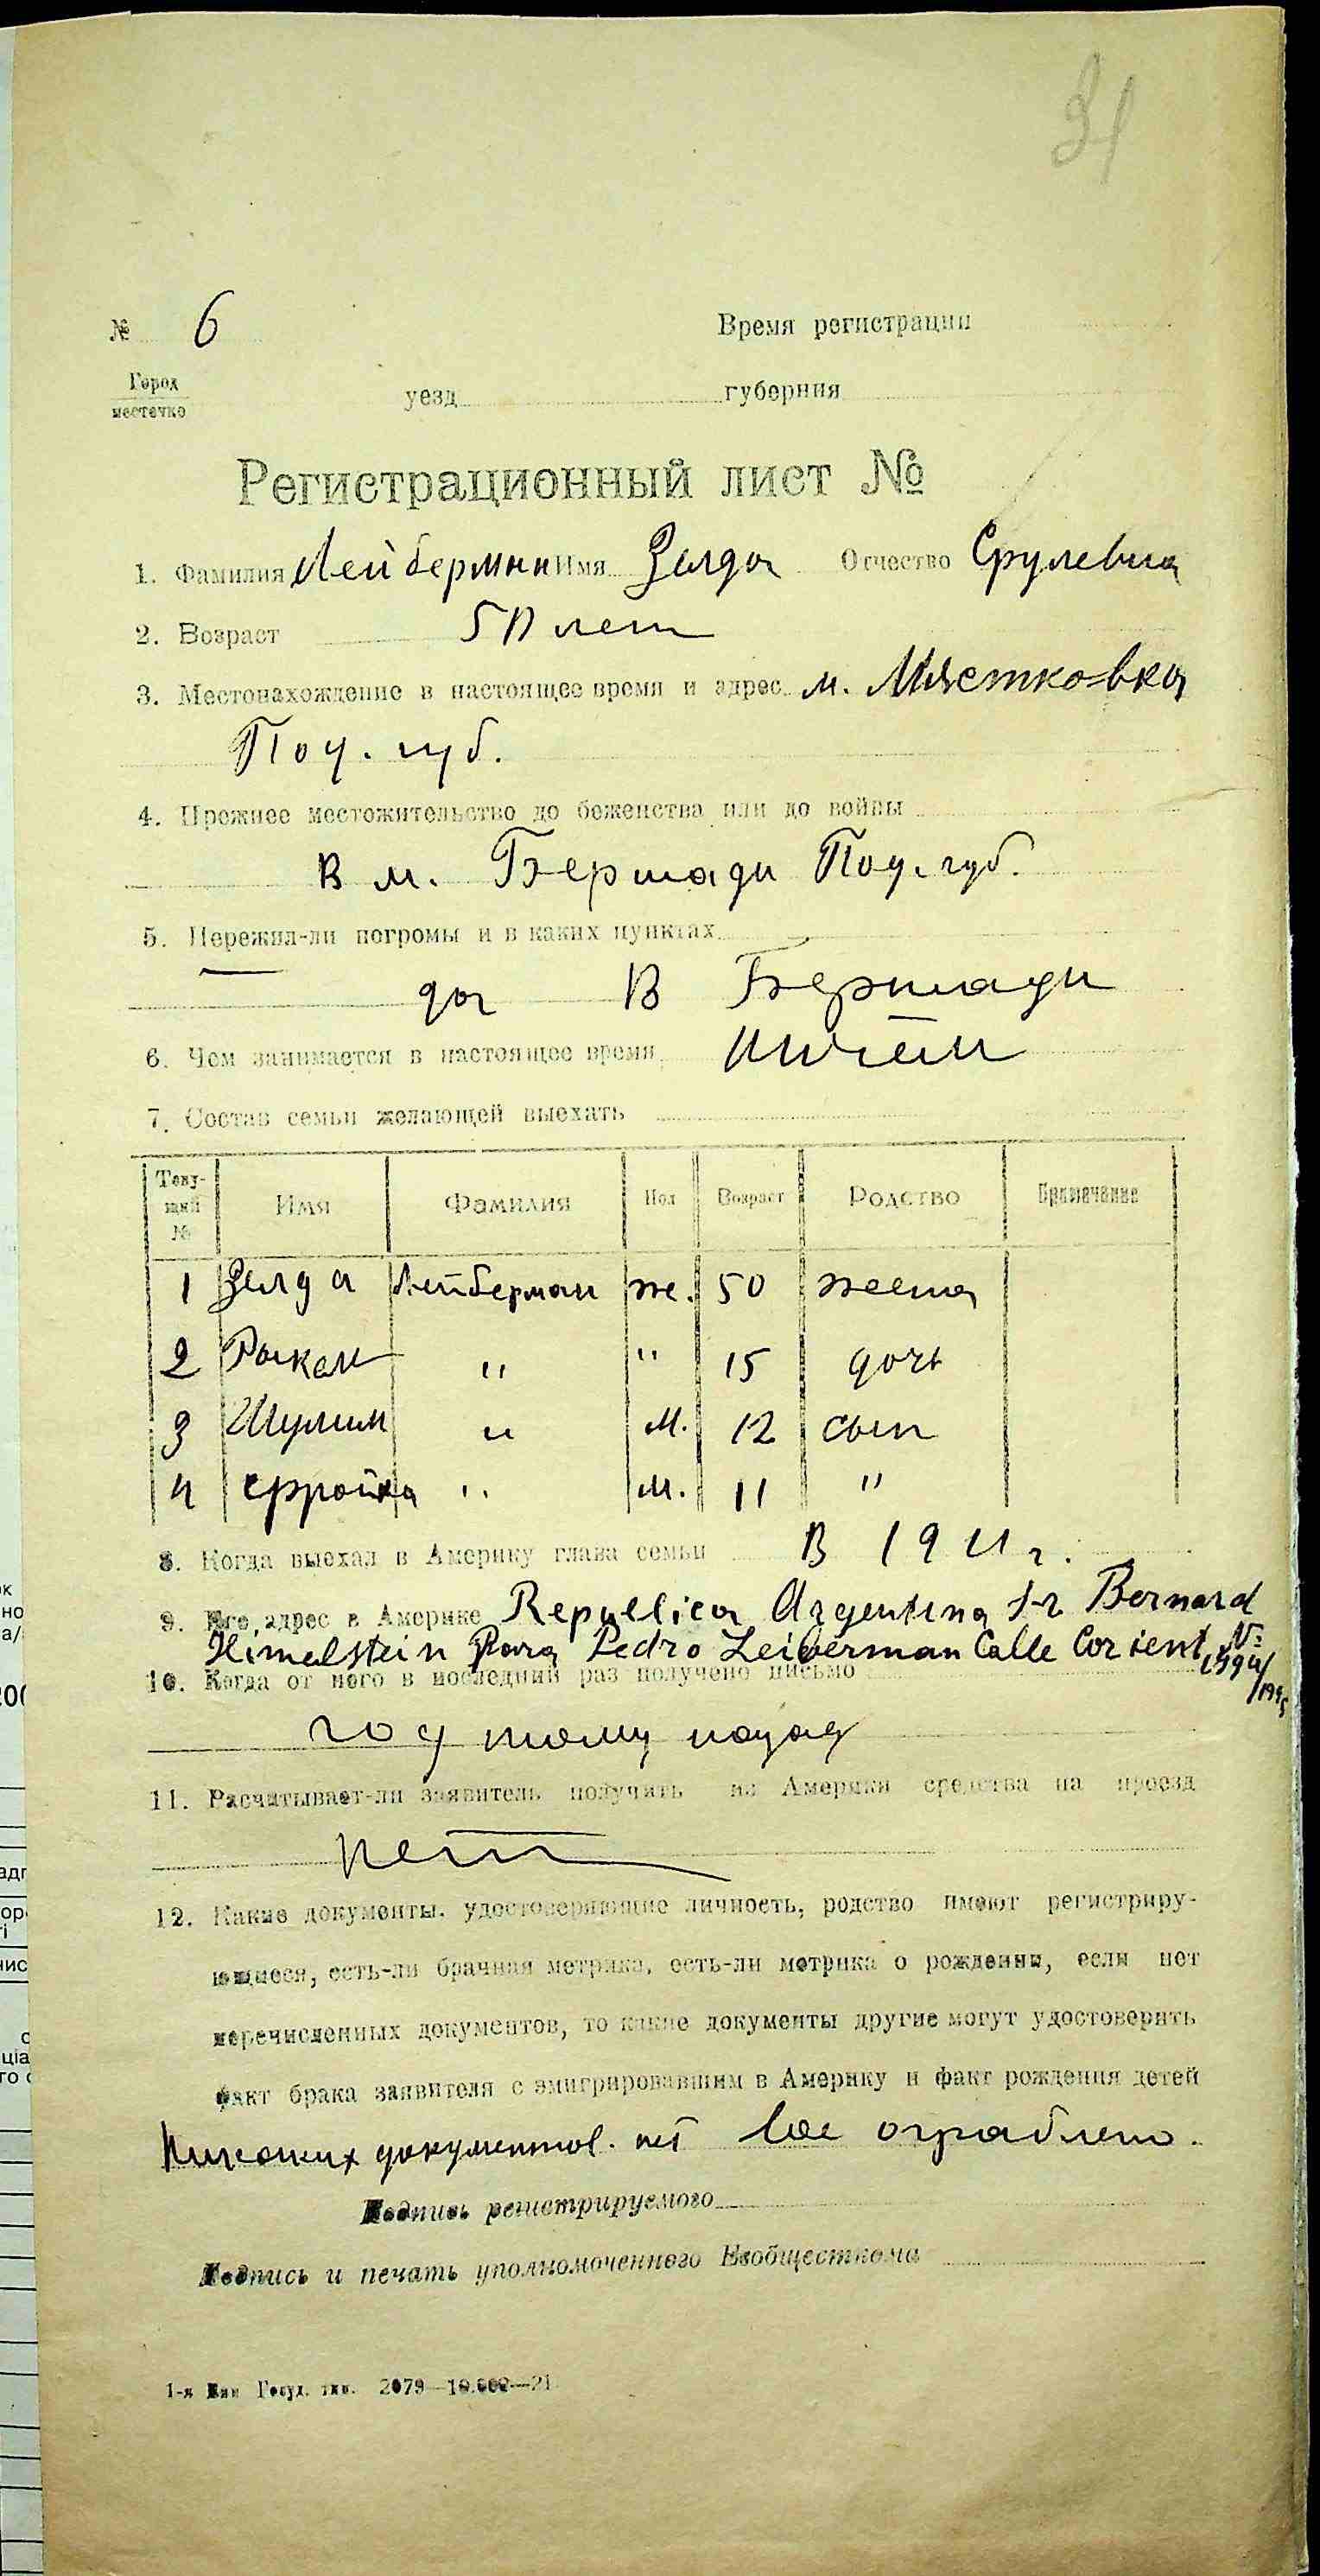 31
№ 6 Время регистрации
Город
местечко уезд губерния
Регистрационный лист №
1. Фамилия Лейберман Имя Зелда Отчество Срулевна
2. Возраст 50 лет
3. Местонахождение в настоящее время и адрес м. Мястковка
Под. губ.
4. Прежнее местожительство до беженства или до войны
в м. Бершади Под. губ.
5. Пережил-ли погромы и в каких пунктах
да в Бершади
6. Чем занимается в настоящее время ничем
7. Состав семьи желающей выехать
Теку-
щий
№ Имя Фамилия Пол Возраст Родство Примечание
1 Зелда Лейберман же. 50 жена
2 Рахел " " 15 дочь
3 Шулим " м. 12 сын
4 Ефройка " м. 11 "
8. Когда выехал в Америку глава семьи В 1911 г.
9. Его адрес в Америке Repullica Argentina Sr Bernard
Himelstein Para Pedro Leiberman Calle Corient №
10. Когда от него в последний раз получено письмо
год тому назад
11. Расчитывает-ли заявитель получить из Америки средства на проезд
нет
12. Какие документы, удостоверяющие личность, родство имеют регистриру-
ющиеся, есть-ли брачная метрика, есть-ли метрика о рождении, если нет
перечисленных документов, то какие документы другие могут удостоверить
факт брака заявителя с эмигрировавшим в Америку и факт рождения детей
Никаких документов. нет Все ограблено.
Подпись регистрируемого
Подпись и печать уполномоченного Евобщесткома
1-я Гос. тип. 2079—10.000—21